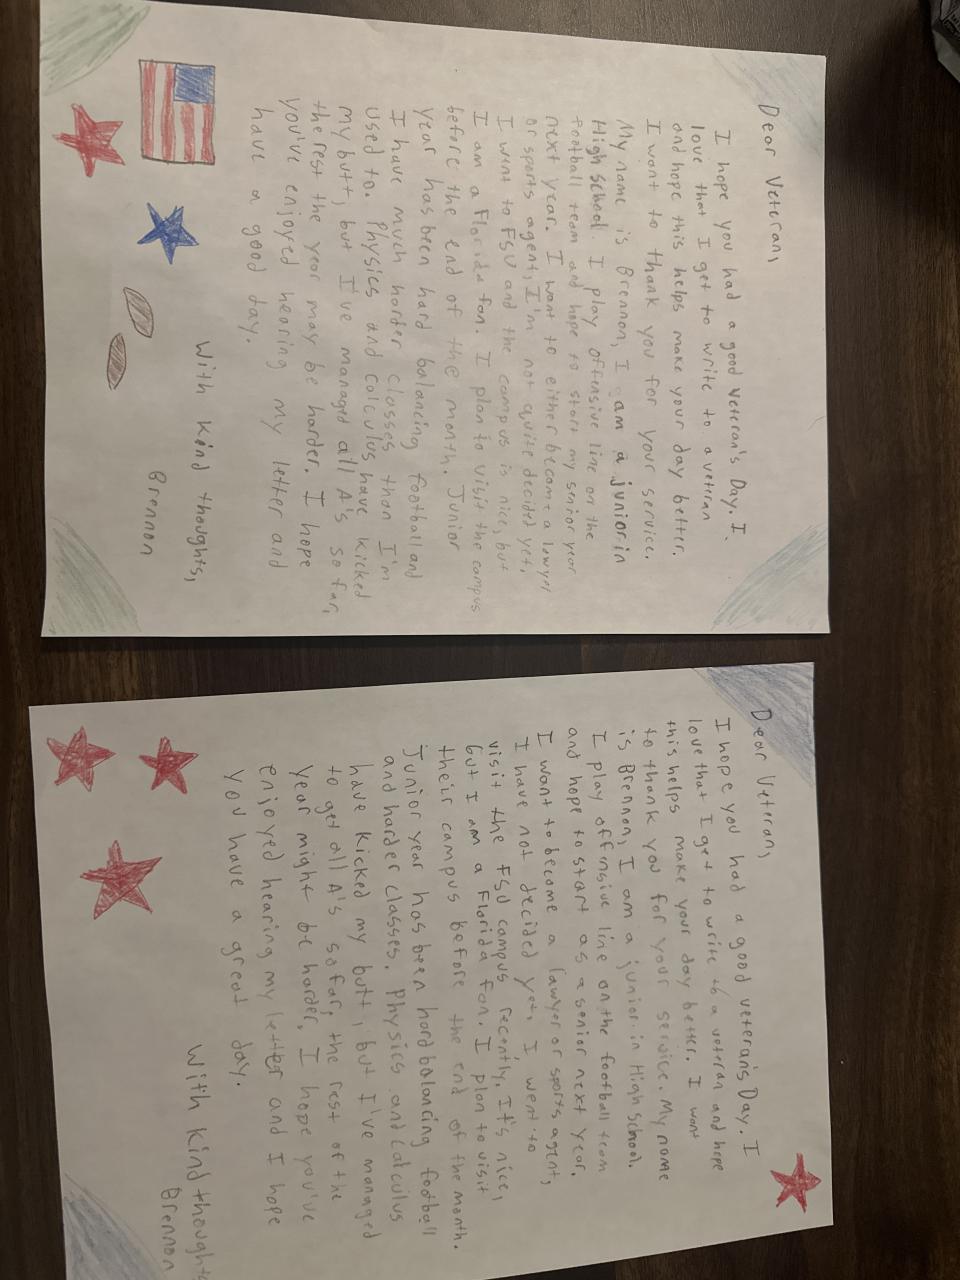 Dear Veteran,
I hope you had a good Veteran's Day. I
love that I get to write to a veteran
and hope this helps make your day better.
I want to thank you for your service.
My name is Brennon, I am a junior in
High School. I play offensive line on the
football team and hope to start my senior year
next year. I want to either become a lawyer
or sports agent, I'm not quite decided yet.
I went to FSU and the campus is nice, but
I am a Florida fan. I plan to visit the campus
before the end of the month. Junior
year has been hard balancing football and
I have much harder classes than I'm
used to. Physics and Calculus have kicked
my butt, but I've managed all A's so far,
the rest the year may be harder. I hope
you've enjoyed hearing my letter and
have a good day.
With kind thoughts,
Brennon
Dear Veteran,
I hope you had a good veteran's Day. I
love that I get to write to a veteran and hope
this helps make your day better. I want
to thank you for your service. My name
is Brennon, I am a junior in High School.
I play offensive line on the football team
and hope to start as a senior next year.
I want to become a lawyer or sports agent,
I have not decided yet. I went to
visit the FSU campus recently. It's nice,
but I am a Florida fan. I plan to visit
their campus before the end of the month.
Junior year has been hard balancing football
and harder classes. Physics and Calculus
have kicked my butt, but I've managed
to get all A's so far, the rest of the
year might be harder. I hope you've
enjoyed hearing my letter and I hope
you have a great day.
With kind thoughts
Brennon